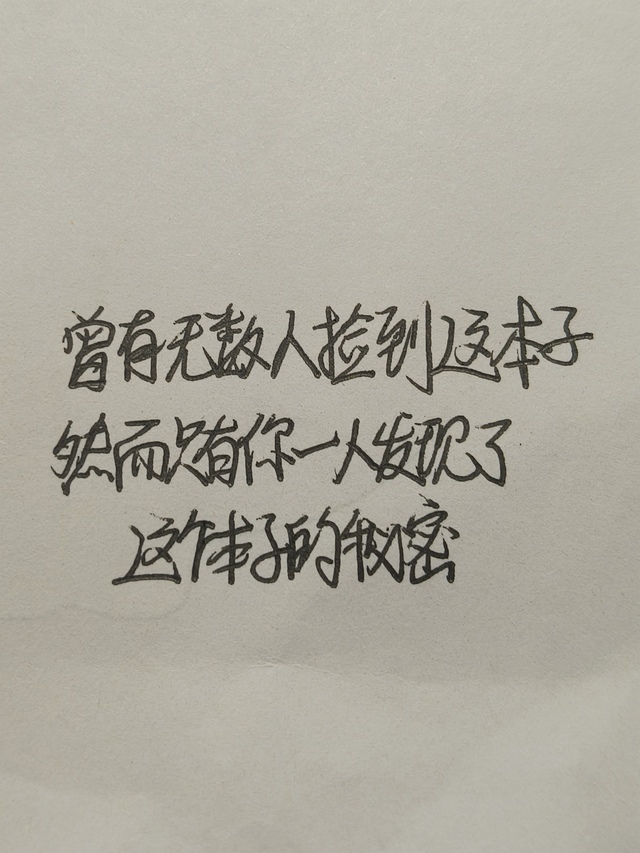 曾有无数人捡到这本子
然而只有你一人发现了
这个本子的秘密